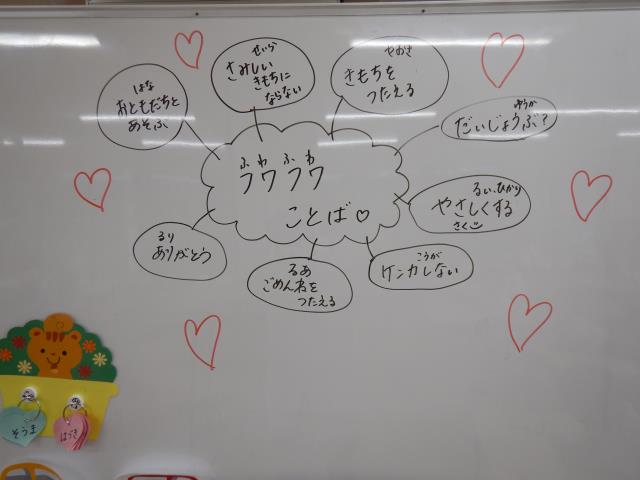 せいら
さみしい
きもちに
ならない
やおき
きもちを
つたえる
はな
おともだちと
あそぶ
ゆうか
だいじょうぶ?
ふわ ふわ
フワフワ
ことば♡
るい、ひかり
やさしくする
さく
るり
ありがとう
るあ
ごめんねを
つたえる
こうが
ケンカしない
そうま
はづき